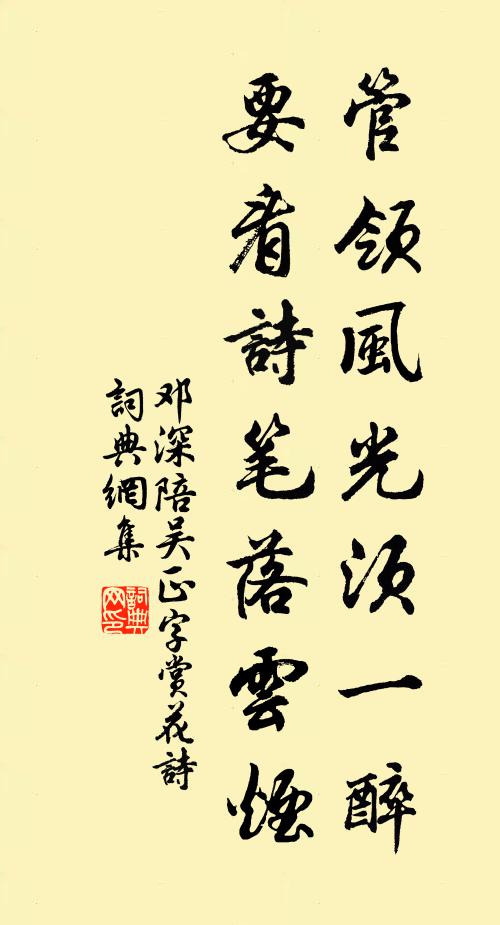 管領風光須一醉
要看詩笔落雲煙
邓深陪吴正字赏花詩
詞典網集
詞典网印